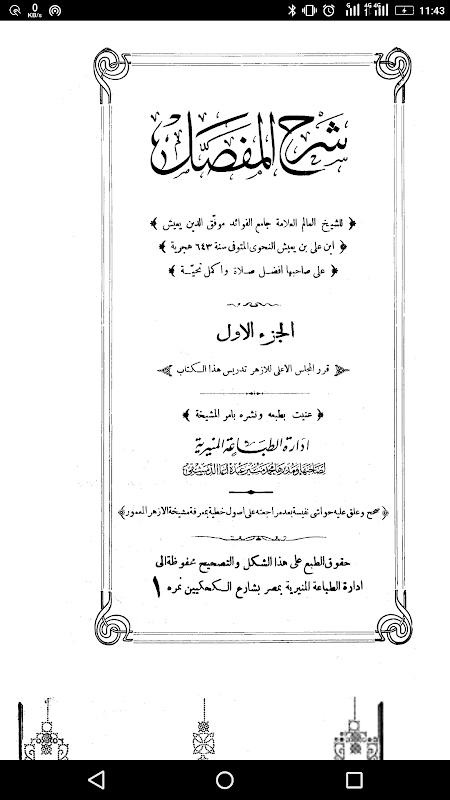 0 KB/s
G 4G 4G 11:43
شرح المفصل
للشيخ العالم العلامة جامع الفوائد موفق الدين يعيش
ابن على بن يعيش النحوى المتوفى سنة ٦٤٣ هجرية
على صاحبها افضل صلاة واكمل تحية
الجزء الاول
قرر المجلس الاعلى للازهر تدريس هذا الكتاب
عنيت بطبعه ونشره بامر المشيخة
ادارة الطباعة المنيرية
لصاحبها ومديرها محمد منير عبده اغا الدمشقى
صحح وعلق عليه حواشى نفيسة بعد مراجعته على اصول خطية بمعرفة مشيخة الازهر المعمور
حقوق الطبع على هذا الشكل والتصحيح محفوظة الى
ادارة الطباعة المنيرية بمصر بشارع الكحكيين نمره ١